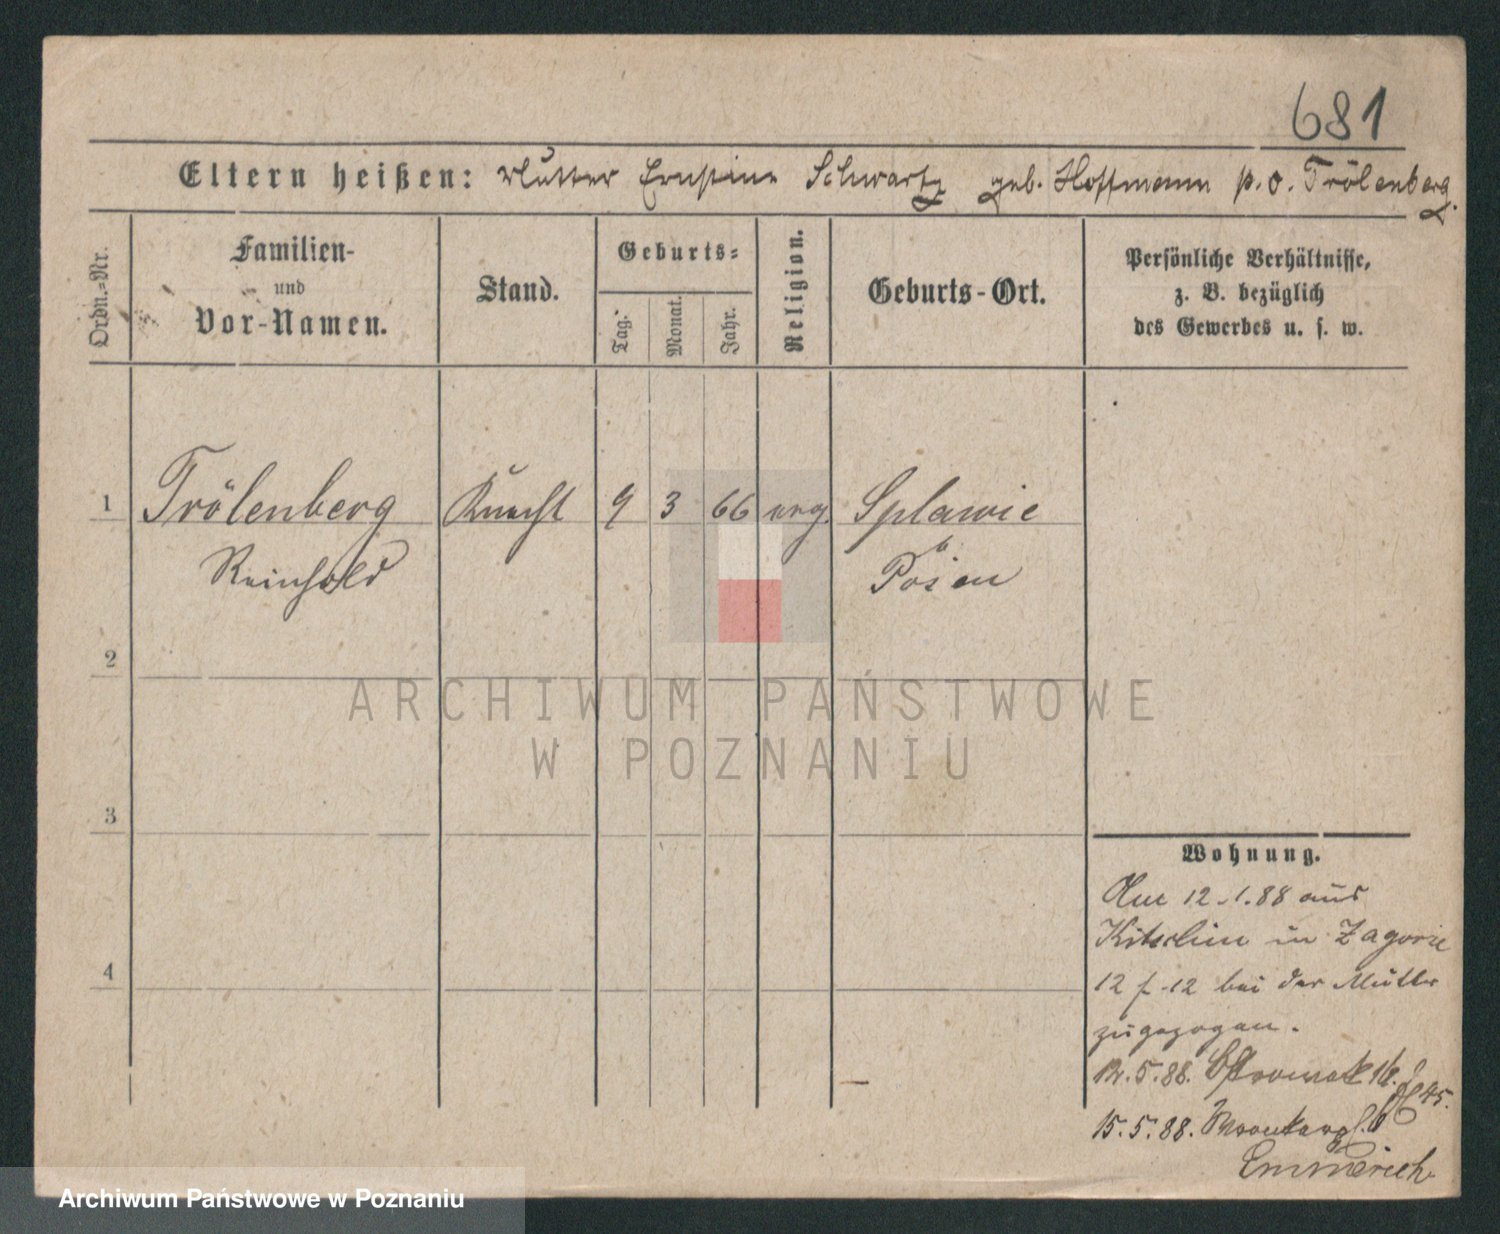 681
Eltern heißen: Mutter Ernstine Schwartz geb. Hoffmann p. o. Trölenberg.
Ordn.=Nr.
Familien-
und
Vor-Namen.
Stand.
Geburts=
Tag.
Monat.
Jahr.
Religion.
Geburts-Ort.
Persönliche Verhältnisse,
z. B. bezüglich
des Gewerbes u. s. w.
1 Trölenberg Knecht 9 3 66 evg. Splawie
Reinhold
b
Posen
2
3
4
ARCHIWUM PAŃSTWOWE
W POZNANIU
Wohnung.
12.1.88 aus
in Zagorie
12 f. 12 bei der Mutter
zugezogen.
12.5.88. Ostrowek 16.
15.5.88.
Emmerich
Archiwum Państwowe w Poznaniu